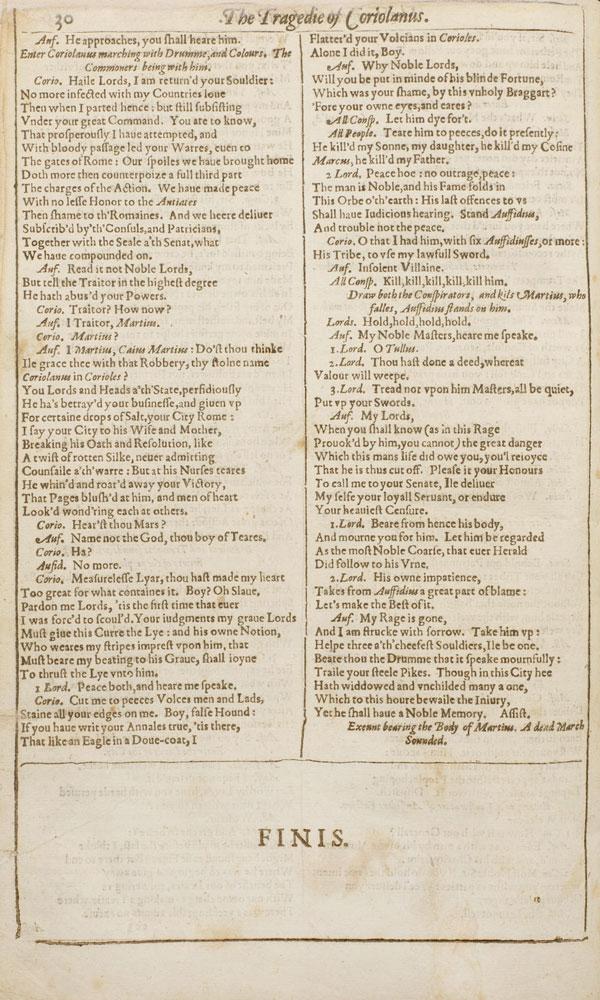 30
The Tragedie of Coriolanus.
Auf. He approaches, you ſhall heare him.
Enter Coriolanus marching with Drumme, and Colours. The
Commoners being with him.
Corio. Haile Lords, I am return'd your Souldier:
No more infected with my Countries loue
Then when I parted hence: but ſtill ſubſiſting
Vnder your great Command. You are to know,
That proſperouſly I haue attempted, and
With bloody paſſage led your Warres, euen to
The gates of Rome: Our ſpoiles we haue brought home
Doth more then counterpoize a full third part
The charges of the Action. We haue made peace
With no leſſe Honor to the Antiates
Then ſhame to th'Romaines. And we heere deliuer
Subſcrib'd by'th'Conſuls, and Patricians,
Together with the Seale a'th Senat, what
We haue compounded on.
Auf. Read it not Noble Lords,
But tell the Traitor in the higheſt degree
He hath abus'd your Powers.
Corio. Traitor? How now?
Auf. I Traitor, Martius.
Corio. Martius?
Auf. I Martius, Caius Martius: Do'ſt thou thinke
Ile grace thee with that Robbery, thy ſtolne name
Coriolanus in Corioles?
You Lords and Heads a'th'State, perfidiouſly
He ha's betray'd your buſineſſe, and giuen vp
For certaine drops of Salt, your City Rome:
I ſay your City to his Wife and Mother,
Breaking his Oath and Reſolution, like
A twiſt of rotten Silke, neuer admitting
Counſaile a'th'warre: But at his Nurſes teares
He whin'd and roar'd away your Victory,
That Pages bluſh'd at him, and men of heart
Look'd wond'ring each at others.
Corio. Hear'ſt thou Mars?
Auf. Name not the God, thou boy of Teares.
Corio. Ha?
Aufid. No more.
Corio. Meaſureleſſe Lyar, thou haſt made my heart
Too great for what containes it. Boy? Oh Slaue,
Pardon me Lords, 'tis the firſt time that euer
I was forc'd to ſcoul'd. Your iudgments my graue Lords
Muſt giue this Curre the Lye: and his owne Notion,
Who weares my ſtripes impreſt vpon him, that
Muſt beare my beating to his Graue, ſhall ioyne
To thruſt the Lye vnto him.
1 Lord. Peace both, and heare me ſpeake.
Corio. Cut me to peeces Volces men and Lads,
Staine all your edges on me. Boy, falſe Hound:
If you haue writ your Annales true, 'tis there,
That like an Eagle in a Doue-coat, I
Flatter'd your Volcians in Corioles.
Alone I did it, Boy.
Auf. Why Noble Lords,
Will you be put in minde of his blinde Fortune,
Which was your ſhame, by this vnholy Braggart?
'Fore your owne eyes, and eares?
All Conſp. Let him dye for't.
All People. Teare him to peeces, do it preſently:
He kill'd my Sonne, my daughter, he kill'd my Coſine
Marcus, he kill'd my Father.
2 Lord. Peace hoe: no outrage, peace:
The man is Noble, and his Fame folds in
This Orbe o'th'earth: His laſt offences to vs
Shall haue Iudicious hearing. Stand Auffidius,
And trouble not the peace.
Corio. O that I had him, with ſix Auffidiuſſes, or more:
His Tribe, to vſe my lawfull Sword.
Auf. Inſolent Villaine.
All Conſp. Kill, kill, kill, kill, kill him.
Draw both the Conſpirators, and kils Martius, who
falles, Auffidius ſtands on him.
Lords. Hold, hold, hold, hold.
Auf. My Noble Maſters, heare me ſpeake.
1. Lord. O Tullus.
2. Lord. Thou haſt done a deed, whereat
Valour will weepe.
3. Lord. Tread not vpon him Maſters, all be quiet,
Put vp your Swords.
Auf. My Lords,
When you ſhall know (as in this Rage
Prouok'd by him, you cannot) the great danger
Which this mans life did owe you, you'l reioyce
That he is thus cut off. Pleaſe it your Honours
To call me to your Senate, Ile deliuer
My ſelfe your loyall Seruant, or endure
Your heauieſt Cenſure.
1. Lord. Beare from hence his body,
And mourne you for him. Let him be regarded
As the moſt Noble Coarſe, that euer Herald
Did follow to his Vrne.
2. Lord. His owne impatience,
Takes from Auffidius a great part of blame:
Let's make the Beſt of it.
Auf. My Rage is gone,
And I am ſtrucke with ſorrow. Take him vp:
Helpe three a'th'cheefeſt Souldiers, Ile be one.
Beate thou the Drumme that it ſpeake mournfully:
Traile your ſteele Pikes. Though in this City hee
Hath widdowed and vnchilded many a one,
Which to this houre bewaile the Iniury,
Yet he ſhall haue a Noble Memory. Aſſiſt.
Exeunt bearing the Body of Martius. A dead March
Sounded.
FINIS.